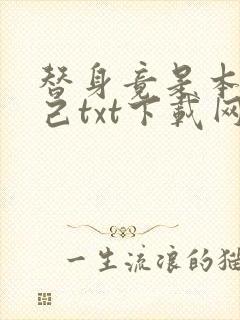 替身竟是本
己txt下载网
一生流浪的猫